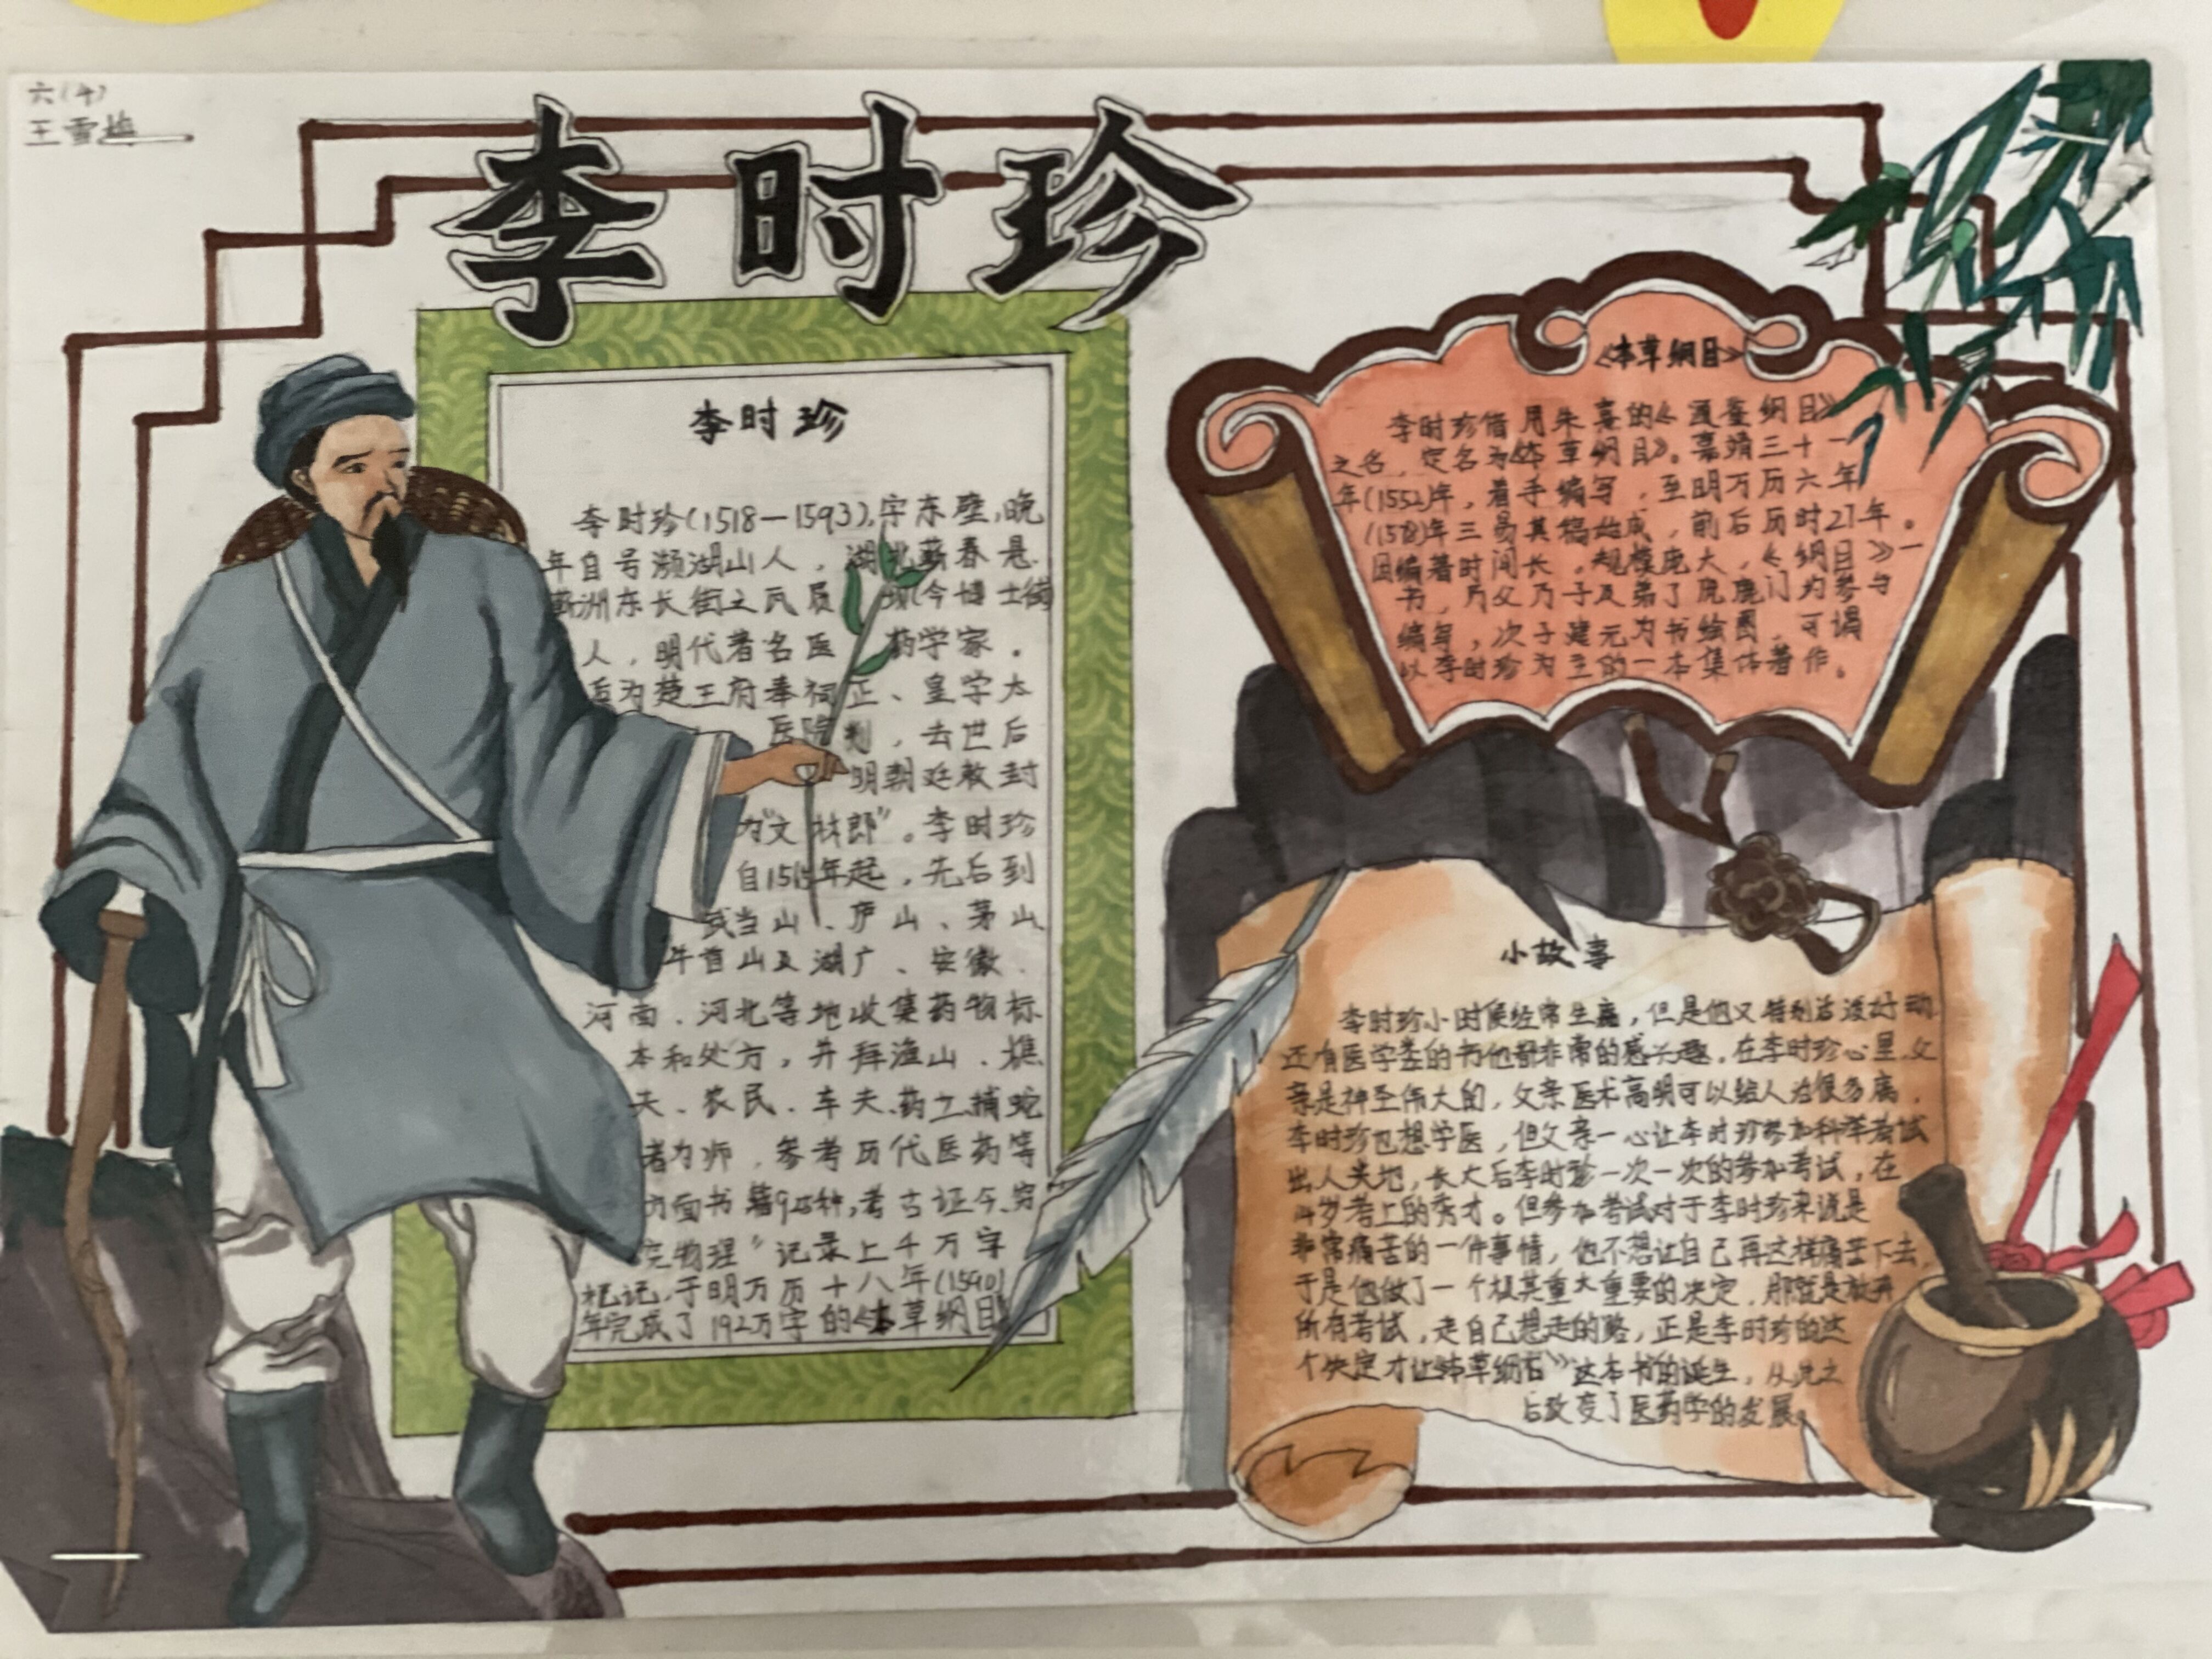 六(4)
王雪梅
李时珍
李时珍
李时珍(1518—1593),字东璧,晚
年自号濒湖山人，湖北蕲春县
蕲洲东长街之瓦屑坝(今博士街
人，明代著名医药学家。
后为楚王府奉祠正、皇学太
医院判，去世后
明朝廷敕封
为“文林郎”。李时珍
自1515年起，先后到
武当山、庐山、茅山
牛首山及湖广、安徽、
河南、河北等地收集药物标
本和处方，并拜渔山、樵
夫、农民、车夫、药工、捕蛇
者为师，参考历代医药等
方面书籍925种,考古证今、穷
究物理”记录上千万字
札记,于明万历十八年(1590)
年完成了192万字的《本草纲目》
《本草纲目》
李时珍借用朱熹的《通鉴纲目》
之名，定名为《本草纲目》。嘉靖三十一
年(1552)年，着手编写，至明万历六年
(1578)年三易其稿始成，前后历时27年。
因编著时间长，规模庞大，《纲目》一
书，乃父乃子及弟了庞鹿门均参与
编写，次子建元为书绘图，可谓
以李时珍为主的一本集体著作。
小故事
李时珍小时候经常生病，但是他又特别活泼好动
还有医学类的书他都非常的感兴趣。在李时珍心里,父
亲是神圣伟大的，父亲医术高明可以给人治很多病，
李时珍也想学医，但父亲一心让李时珍参加科举考试
出人头地，长大后李时珍一次一次的参加考试，在
14岁考上的秀才。但参加考试对于李时珍来说是
非常痛苦的一件事情，他不想让自己再这样痛苦下去，
于是他做了一个极其重大重要的决定，那就是放弃
所有考试，走自己想走的路，正是李时珍的这
个决定才让《本草纲目》这本书的诞生，从此之
后改变了医药学的发展。